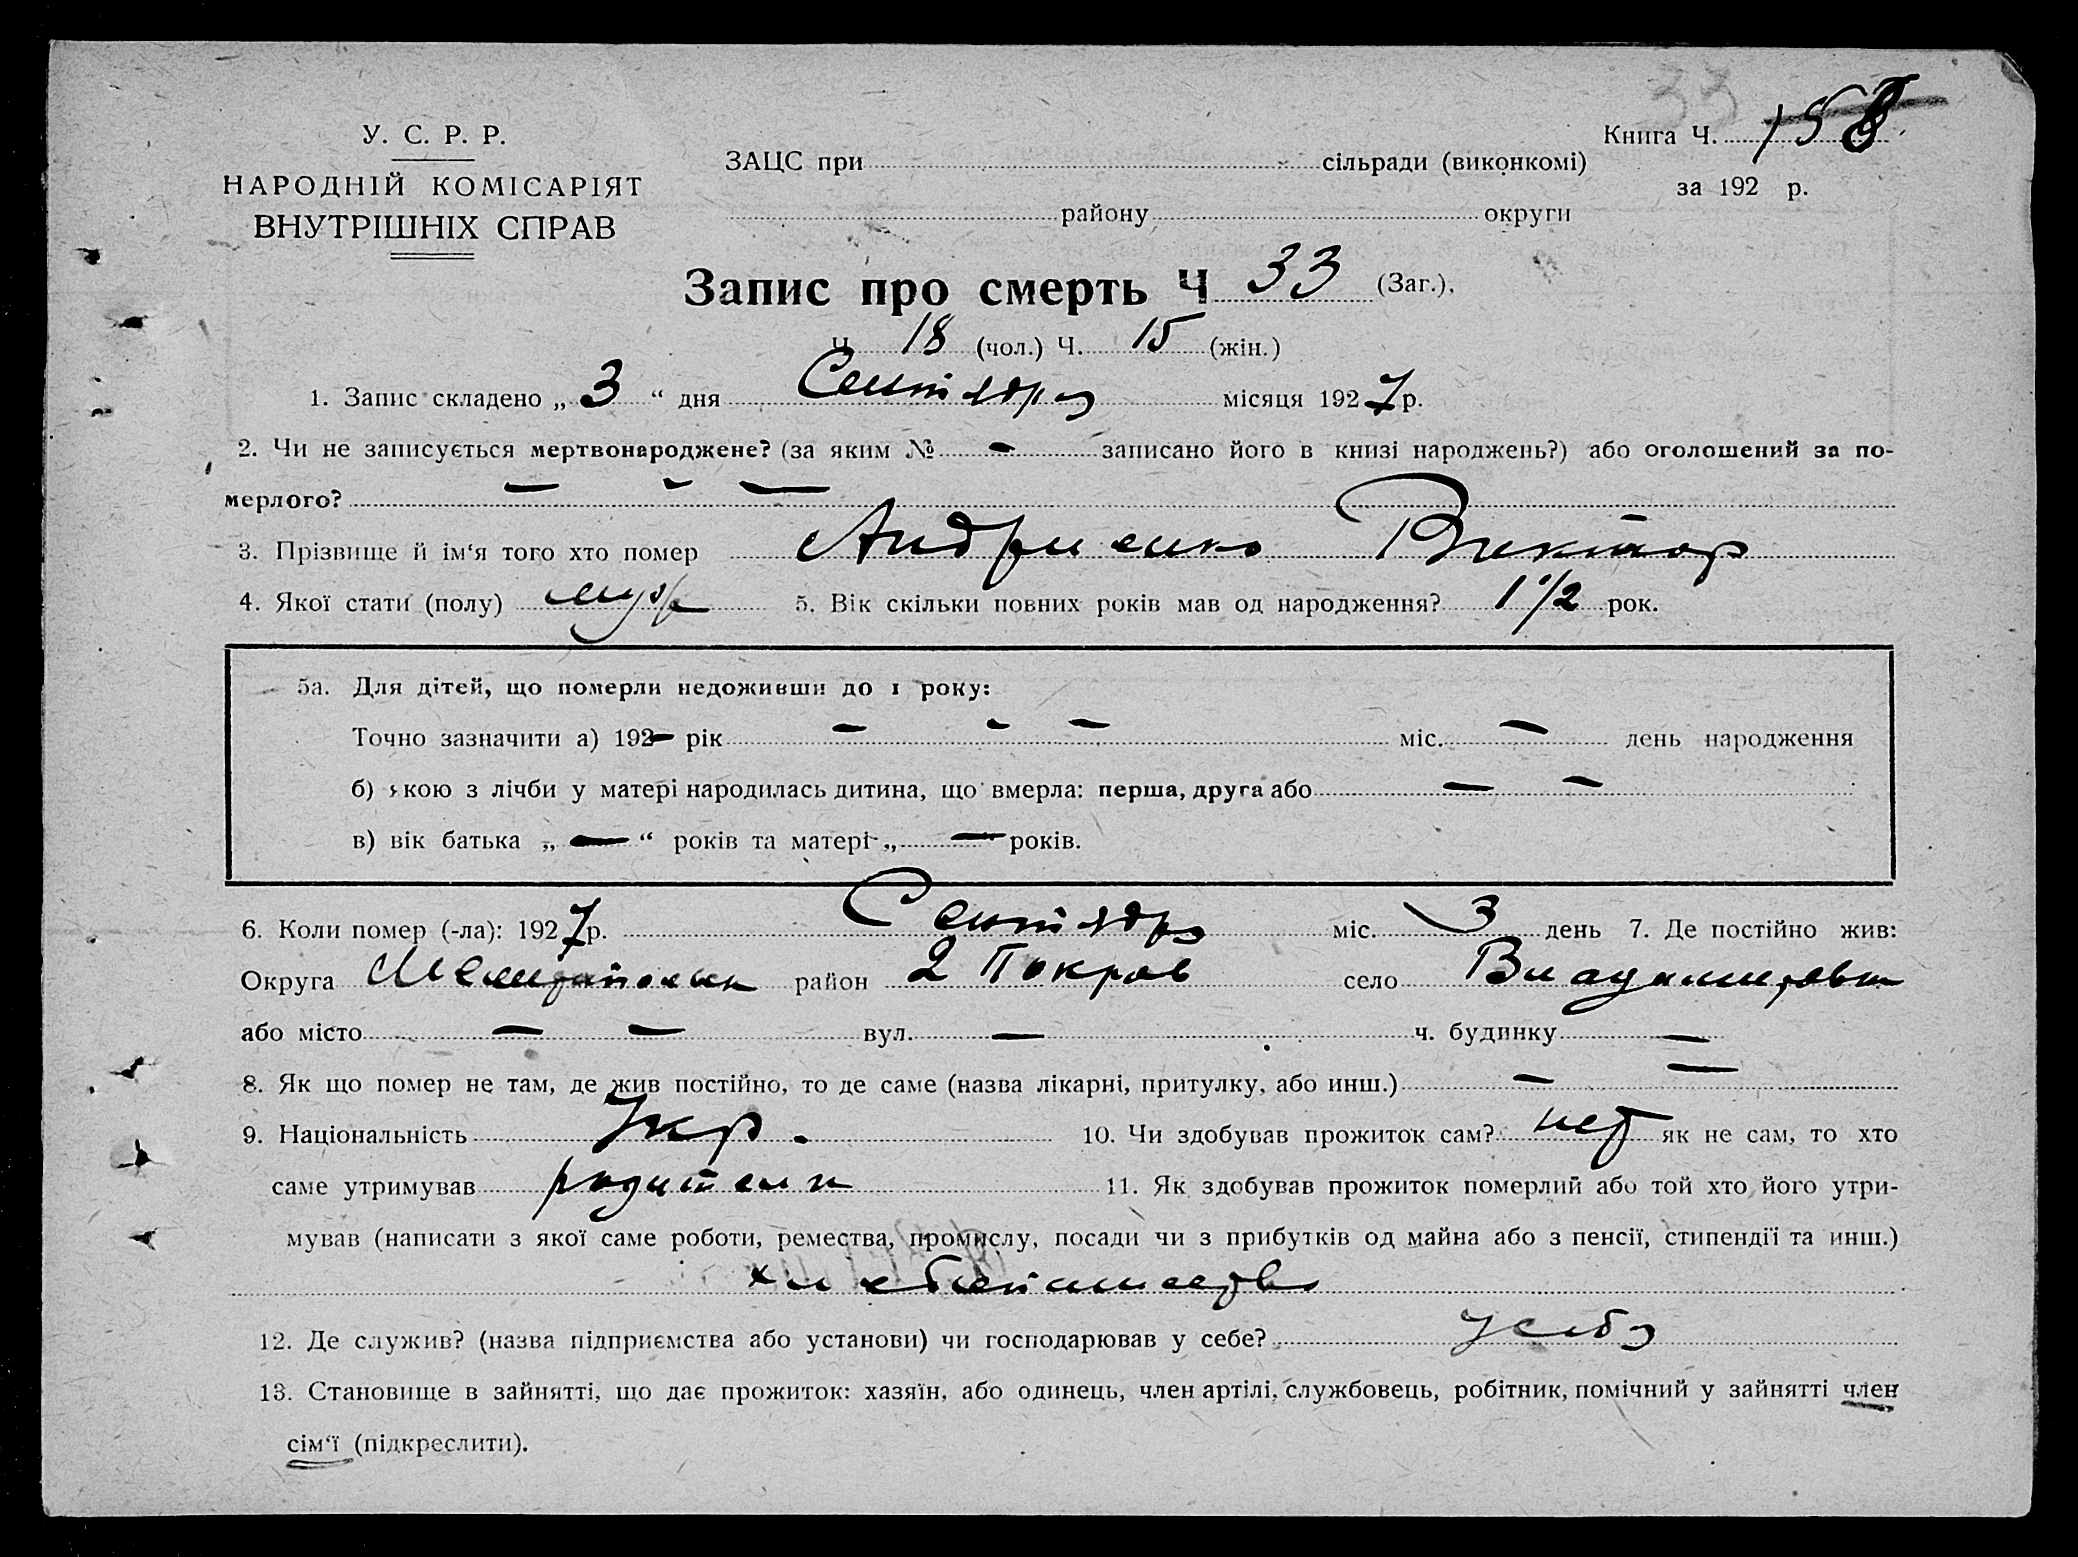 33
У. С. Р. Р.
НАРОДНІЙ КОМІСАРІЯТ
ВНУТРІШНІХ СПРАВ
Книга Ч. 158
ЗАЦС при сільради (виконкомі)
за 192 р.
району округи
Запис про смерть Ч 33 (Заг.).
Ч. 18 (чол.) Ч. 15 (жін.)
1. Запис складено „ 3 “ дня Сентября місяця 1927 р.
2. Чи не записується мертвонароджене? (за яким № — записано його в книзі народжень?) або оголошений за по-
мерлого? — - —
3. Прізвище й ім‘я того хто помер Андриенко Виктор
4. Якої стати (полу) муж 5. Вік скільки повних років мав од народження? 1 1/2 рок.
5а. Для дітей, що померли недоживши до 1 року:
Точно зазначити а) 192— рік — - — міс. — день народження
б) якою з лічби у матері народилась дитина, що вмерла: перша, друга або — —
в) вік батька „ — “ років та матері „ — років.
6. Коли помер (-ла): 1927 р. Сентября міс. 3 день 7. Де постійно жив:
Округа Мелитопольск район 2 Покров село Владимировк
або місто — — вул. — ч. будинку —
8. Як що помер не там, де жив постійно, то де саме (назва лікарні, притулку, або инш.) — —
9. Національність Укр. 10. Чи здобував прожиток сам? нет як не сам, то хто
саме утримував родители 11. Як здобував прожиток померлий або той хто його утри-
мував (написати з якої саме роботи, ремества, промислу, посади чи з прибутків од майна або з пенсії, стипендії та инш.)
хлебопашество
12. Де служив? (назва підприємства або установи) чи господарював у себе? у себя
13. Становище в зайнятті, що дає прожиток: хазяїн, або одинець, член артілі, службовець, робітник, помічний у зайнятті член
сім‘ї (підкреслити).